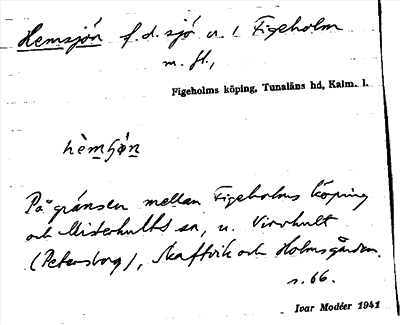 Hemsjön f.d. sjö n. 1 Figeholm
m. fl.,
Figeholms köping, Tunaläns hd, Kalm. l.
hèmʃö̀n
På gränsen mellan Figeholms köping
och Misterhults sn, n. Virvhult
(Petersborg), Skaftvik och Holmsgården.
s. 66.
Ivar Modéer 1941